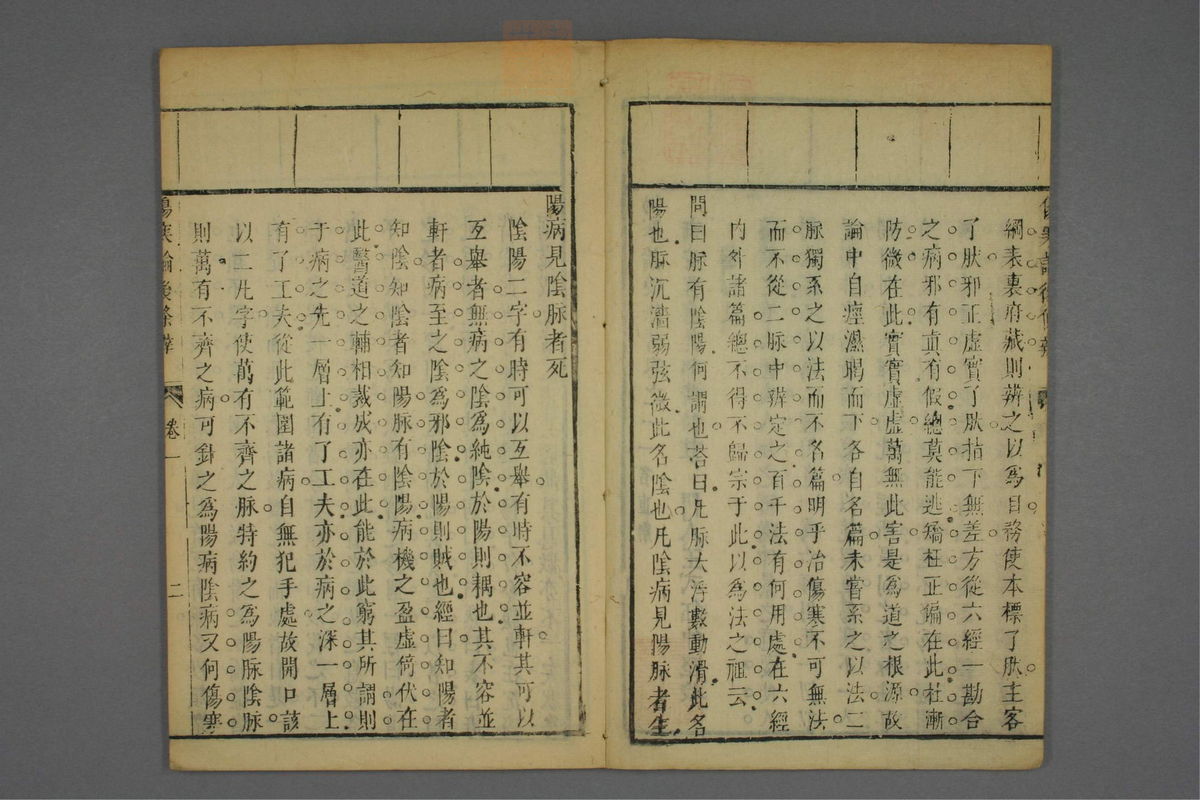 綱表裏府藏則辨之以爲目務使本標了肰主客
了肰邪正虛實了肰指下無差方從六經一勘合
之病邪有真有假總莫能逃矯枉正偏在此杜漸
防微在此實實虛虛萬無此害是爲道之根源故
論中自痙濕暍而下各自名篇未嘗系之以法二
脉獨系之以法而不名篇明乎治傷寒不可無法
而不從二脉中辨定之百千法有何用處在六經
内外諸篇總不得不歸宗于此以爲法之祖云
問曰脉有陰陽何謂也荅曰凡脉大浮數動滑此名
陽也脉沉濇弱弦微此名陰也凡陰病見陽脉者生
陽病見陰脉者死
陰陽二字有時可以互舉有時不容並軒其可以
互舉者無病之陰爲純陰於陽則耦也其不容並
軒者病至之陰爲邪陰於陽則賊也經曰知陽者
知陰知陰者知陽脉有陰陽病機之盈虛倚伏在
此醫道之輔相裁成亦在此能於此窮其所謂則
于病之先一層上有了工夫亦於病之深一層上
有了工夫從此範圍諸病自無犯手處故開口該
以二凡字使萬有不齊之脉特約之爲陽脉陰脉
則萬有不齊之病可斜之爲陽病陰病又何傷寒
傷寒論後條辨
卷一
二